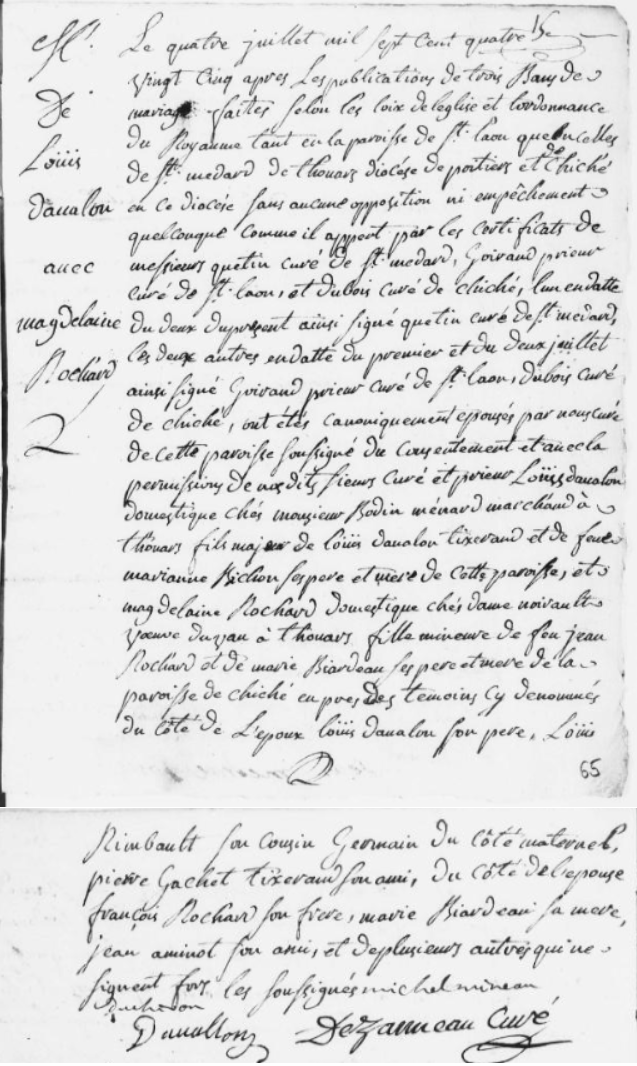 M.
De
Loüis
daualon
auec
magdelaine
Rochard
Le quatre juillet mil sept cent quatre
vingt cinq apres Les publications de trois Bans de
mariage faittes selon les loix de leglise et lordonnance
du Royaume tant en la paroisse de st. laon que en celles
de st. medard de thouars diocése de poitiers et de Chiché
en ce diocése sans aucune opposition ni empêchement
quelconque comme il appert par les certificats de
messieurs quetin curé de st. medard, Goirand prieur
curé de st. laon, et dubois curé de chiché, lun en datte
du deux du present ainsi signé quetin curé de st. medard,
les deux autres en datte du premier et du deux juillet
ainsi signé Goirand prieur curé de st. laon, dubois curé
de chiché, ont étés canoniquement épousés par nous curé
de cette paroisse soussigné du Consentement et auec la
permissions de nosdits sieurs Curé et prieur Loüis daualon
domestique chés monsieur Bodin ménard marchand à
thoüars fils majeur de loüis daualon tixerand et de feue
marianne Bichon ses pere et mere de cette paroisse, et
magdelaine Rochard domestique chés dame noirault
vœuve duzan à thouars fille mineure de feu jean
Rochard et de marie Biardeau ses pere et mere de la
paroisse de chiché en presences temoins cy denommés
du côté de L'epoux loüis daualon son pere, Loüis
65
Rimbault son cousin Germain du côté maternel,
pierre Gachet tixerand son ami, du côté de lepouse
françois Rochard son frere, marie Biardeau sa mere,
jean aminot son ami, et de plusieurs autres qui ne
signent fors les soussignés michel mineau
Davallon Dezanneau Curé